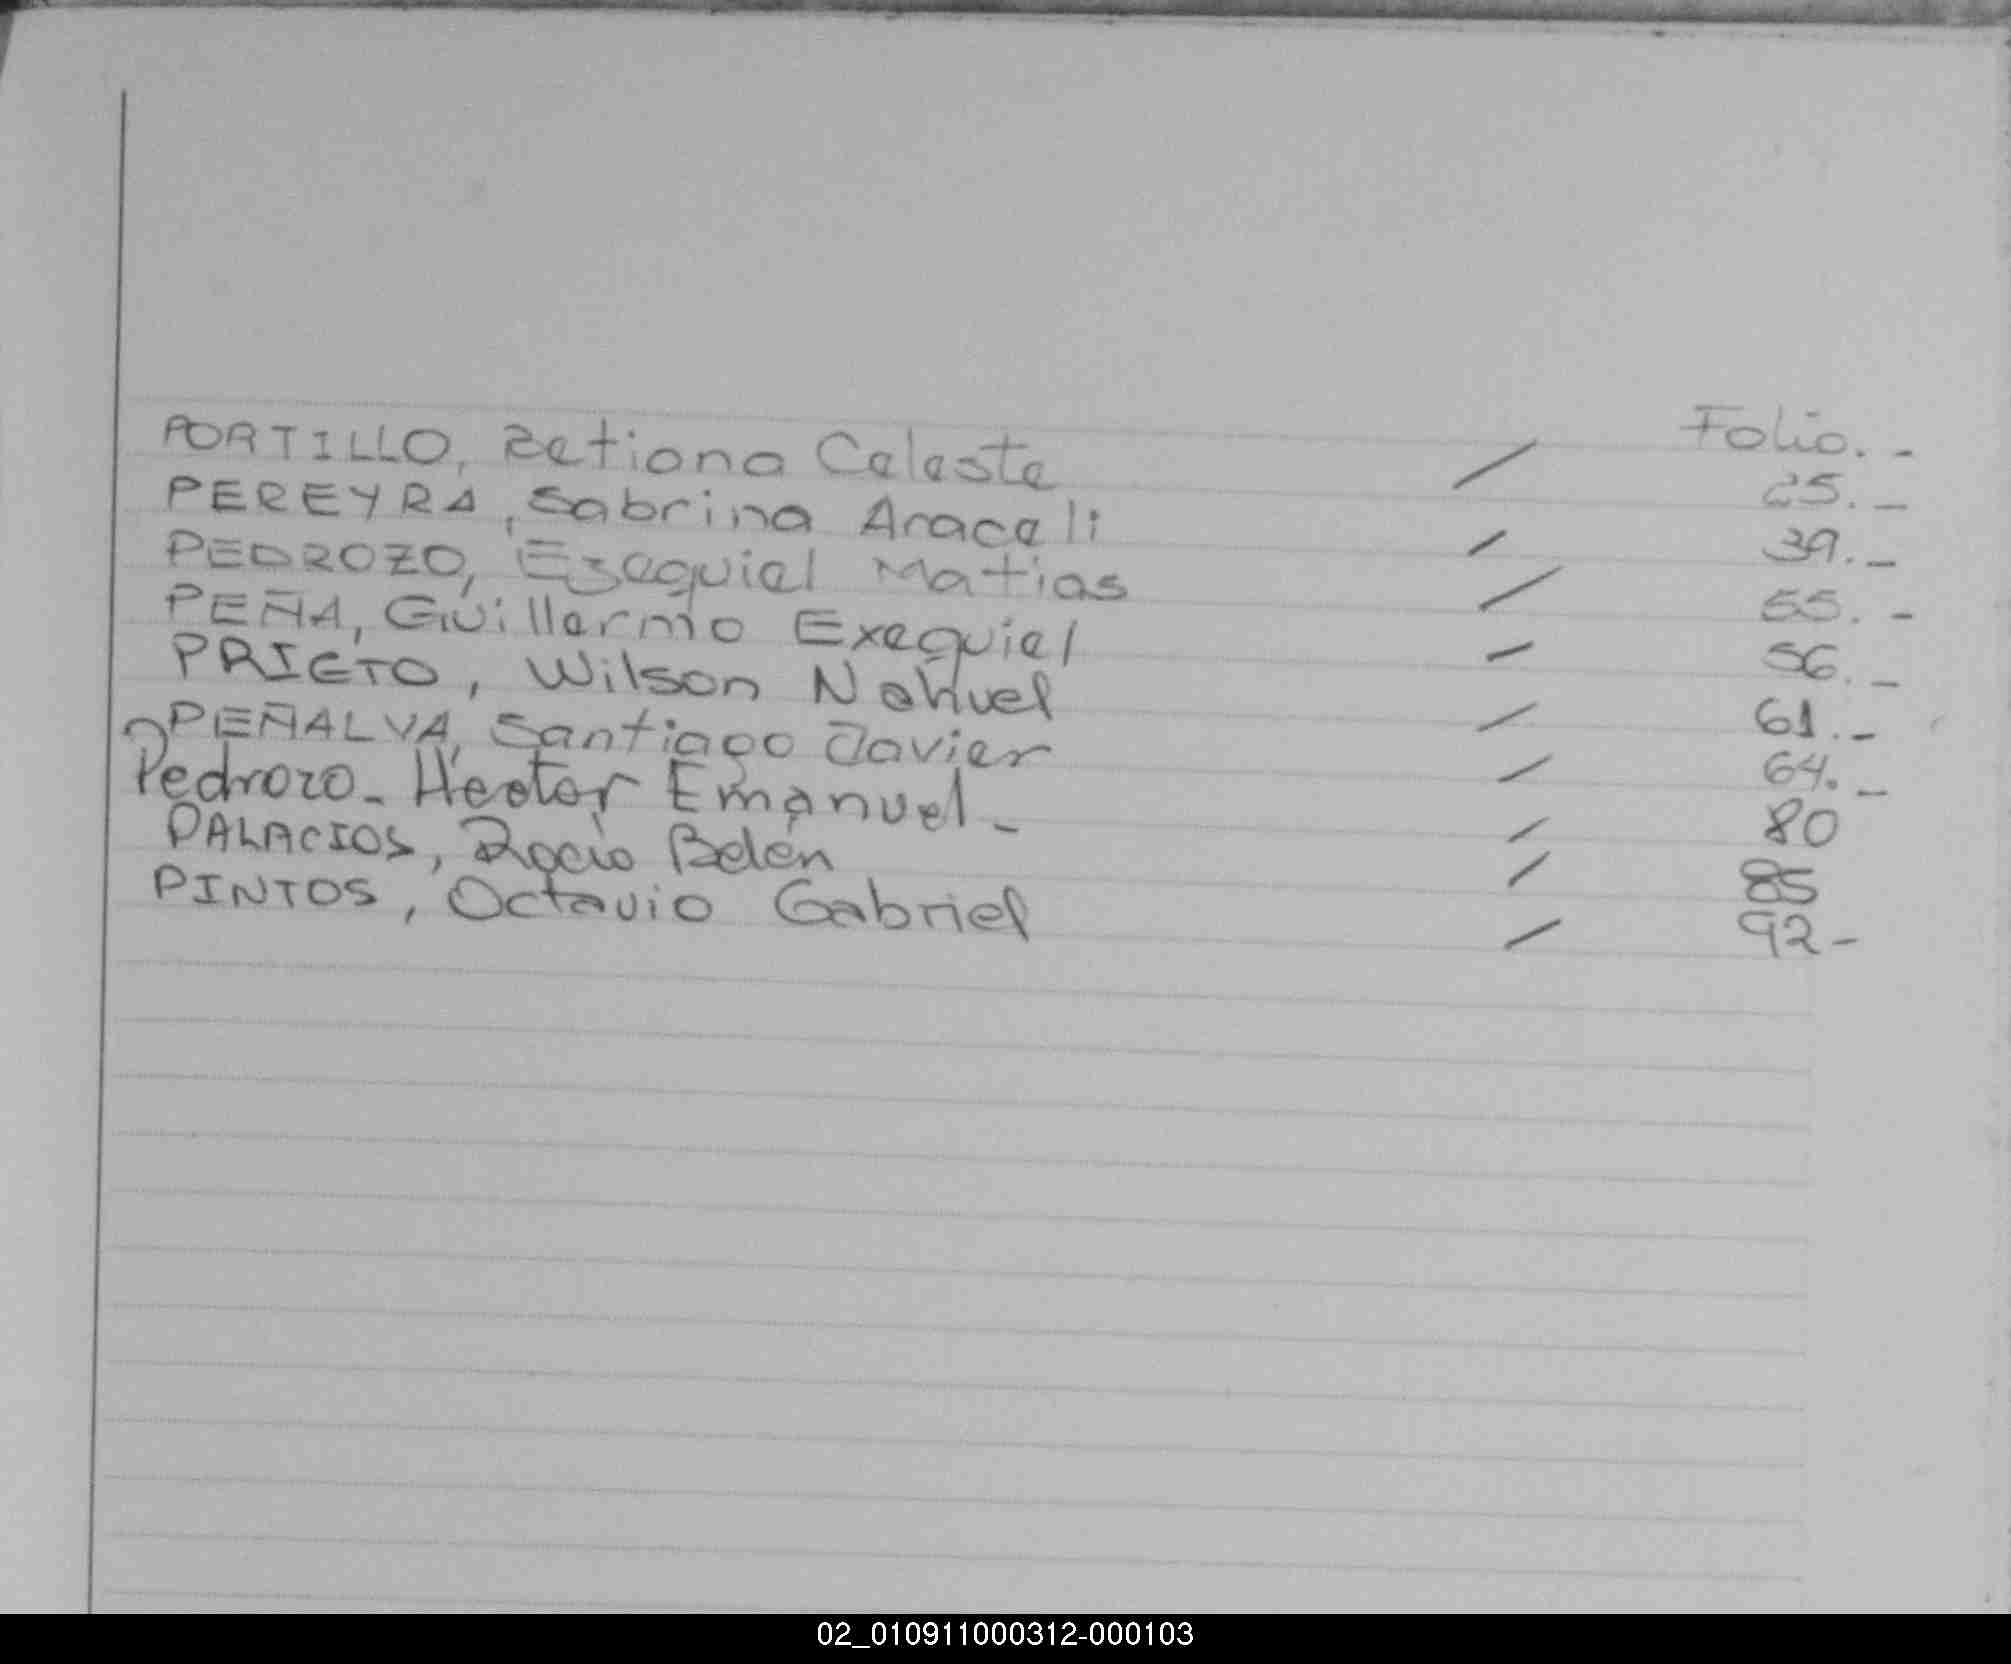 Folio.-
PORTILLO, Retiona Celeste / 25.-
PEREYRA, Sabrina Araceli / 39.-
PEDROZO, Ezequiel Matias / 55.-
PEÑA, Guillermo Exequiel / 56.-
PRIETO, Wilson Nahuel / 61.-
PEÑALVA, Santiago Javier / 64.-
Pedrozo - Hector Emanuel - / 80
PALACIOS, Rocío Belén / 85
PINTOS, Octavio Gabriel / 92-
02_010911000312-000103